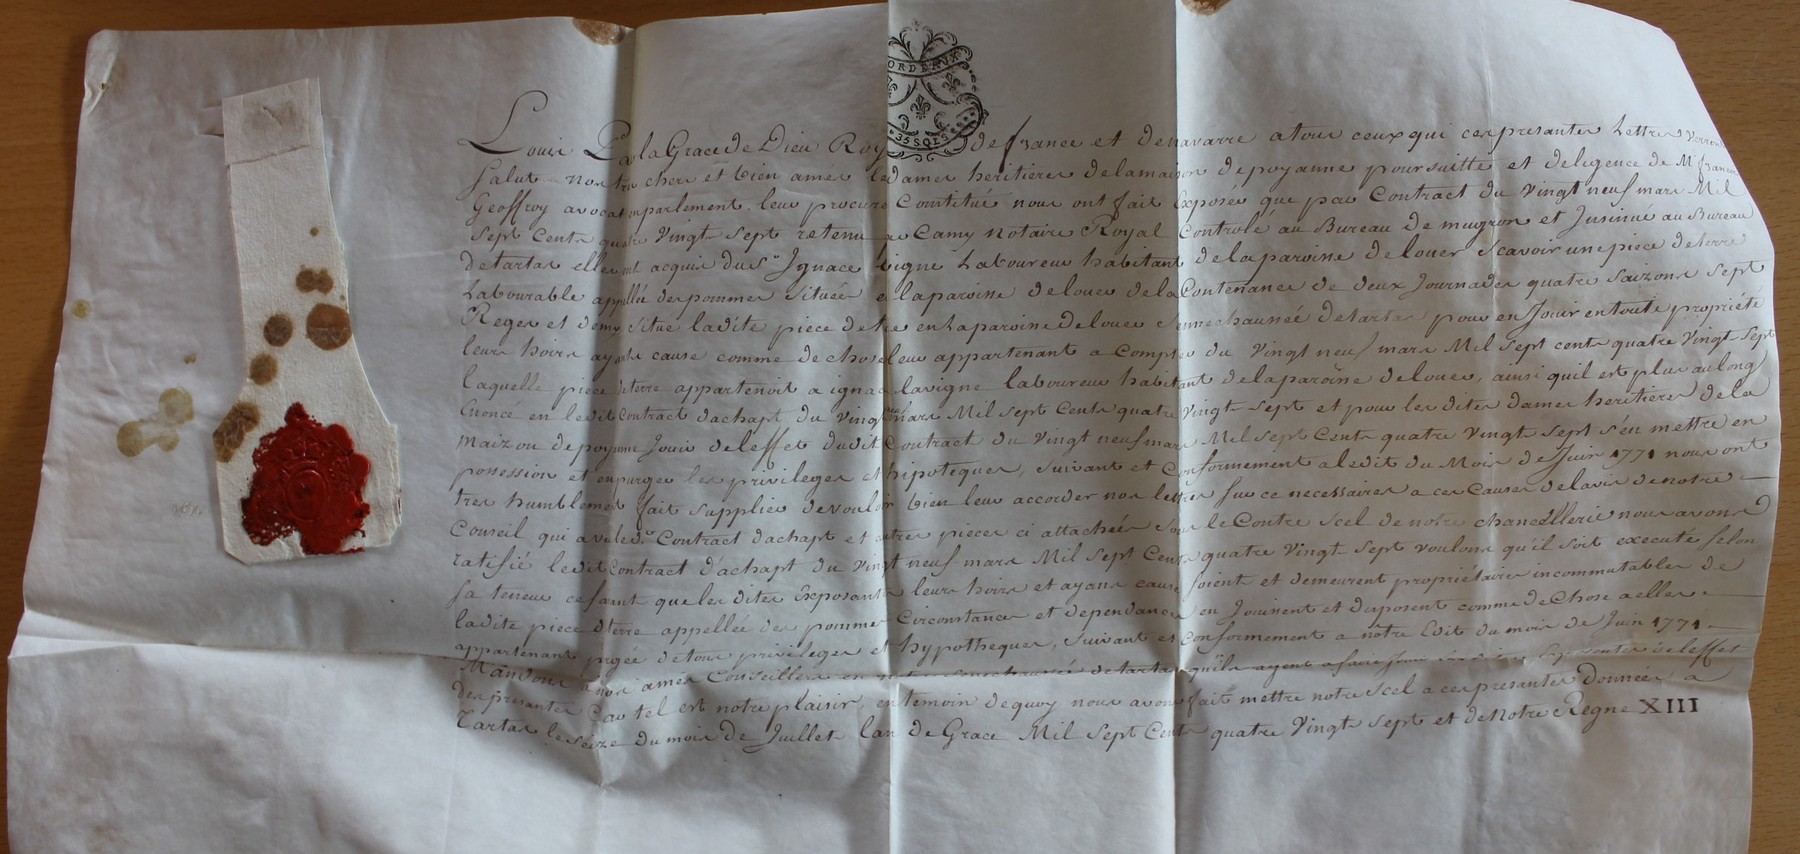 ORDEAUX
35 SOLS
Louis Par la Grace de Dieu Roy de france et de navarre a tous ceux qui ces presantes Lettres Verront
Salut nos tres cheres et bien amées les dames heritieres de la maison de poyanne poursuitte et deligence de Mr. francois
Geoffroy avocat en parlement leur procureur Constitué nous ont fait Exposée que par Contract du vingt neuf mars Mil
Sept Cents quatre Vingt Sept retenu par Camy Notaire Royal Controlé au Bureau de mugron et Insinué au Bureau
de tartas elles ont acquis du Sr. Ignace Lavigne Laboureur habitant de la paroisse de louer Scavoir une piece de terre
Labourable appellée des pommes Située en la paroisse de louer de la Contenance de deux Journades quatre Saizons Sept
Reges et demy Situé la dite piece de terre en la paroisse de louer Sennechaussée de tartas pour en Jouir en toute propriété
leurs hoirs ayants cause comme de chose leur appartenant a Compter du Vingt neuf mars Mil Sept cents quatre Vingt Sept
laquelle piece de terre appartenoit a ignace lavigne laboureur habitant de la paroisse de louer, ainsi quil est plus au long
Enoncé en le dit Contract dachapt du Vingt neuf mars Mil Sept Cents quatre Vingt Sept et pour les dites dames heritieres de la
Maizon de poyanne Jouir de l'effet du dit Contract du Vingt neuf mars Mil Sept Cents quatre Vingt Sept s'en mettre en
possession et en purger les privileges et hipoteques, Suivant et Conformement a ledit du Mois de Juin 1771 nous ont
tres humblement fait Supplier de vouloir bien leur accorder nos lettres sur ce necessaires a ces Causes de lavis de notre
Conseil qui a vu led. Contract dachapt et autres pieces ci attachées Sous le Contre Scel de notre chancellerie nous avons
ratifié le dit Contract d'achapt du Vingt neuf mars Mil Sept Cents quatre Vingt Sept voulons qu'il Soit executé Selon
Sa teneur ce faisant que les dites Exposantes leurs hoirs et ayans cause Soient et demeurent propriétaires incommutables de
la dite piece de terre appellée des pommes Circonstances et dependances en Jouissent et disposent comme de Chose a elles
appartenant purgée de tous privileges et hypotheques, Suivant et Conformement a nôtre Edit du mois de Juin 1771.
Mandons a nos amés Conseillers en notre Sennechaussée de tartas quils ayent a faire Jouir de l'effet
des presantes Car tel est notre plaisir, en temoin de quoy nous avons fait mettre notre Scel a ces presantes Données a
Tartas le Seize du mois de Juillet lan de Grace Mil Sept Cents quatre Vingt Sept et de Notre Regne XIII